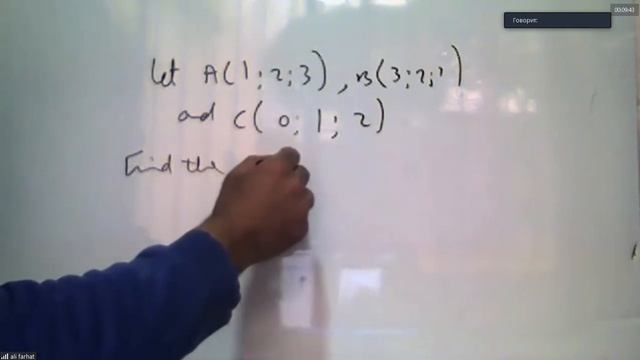 Говорит:
00:09:43
let A(1;2;3), B(3;2;1)
and C(0;1;2)
Find the
ali farhat